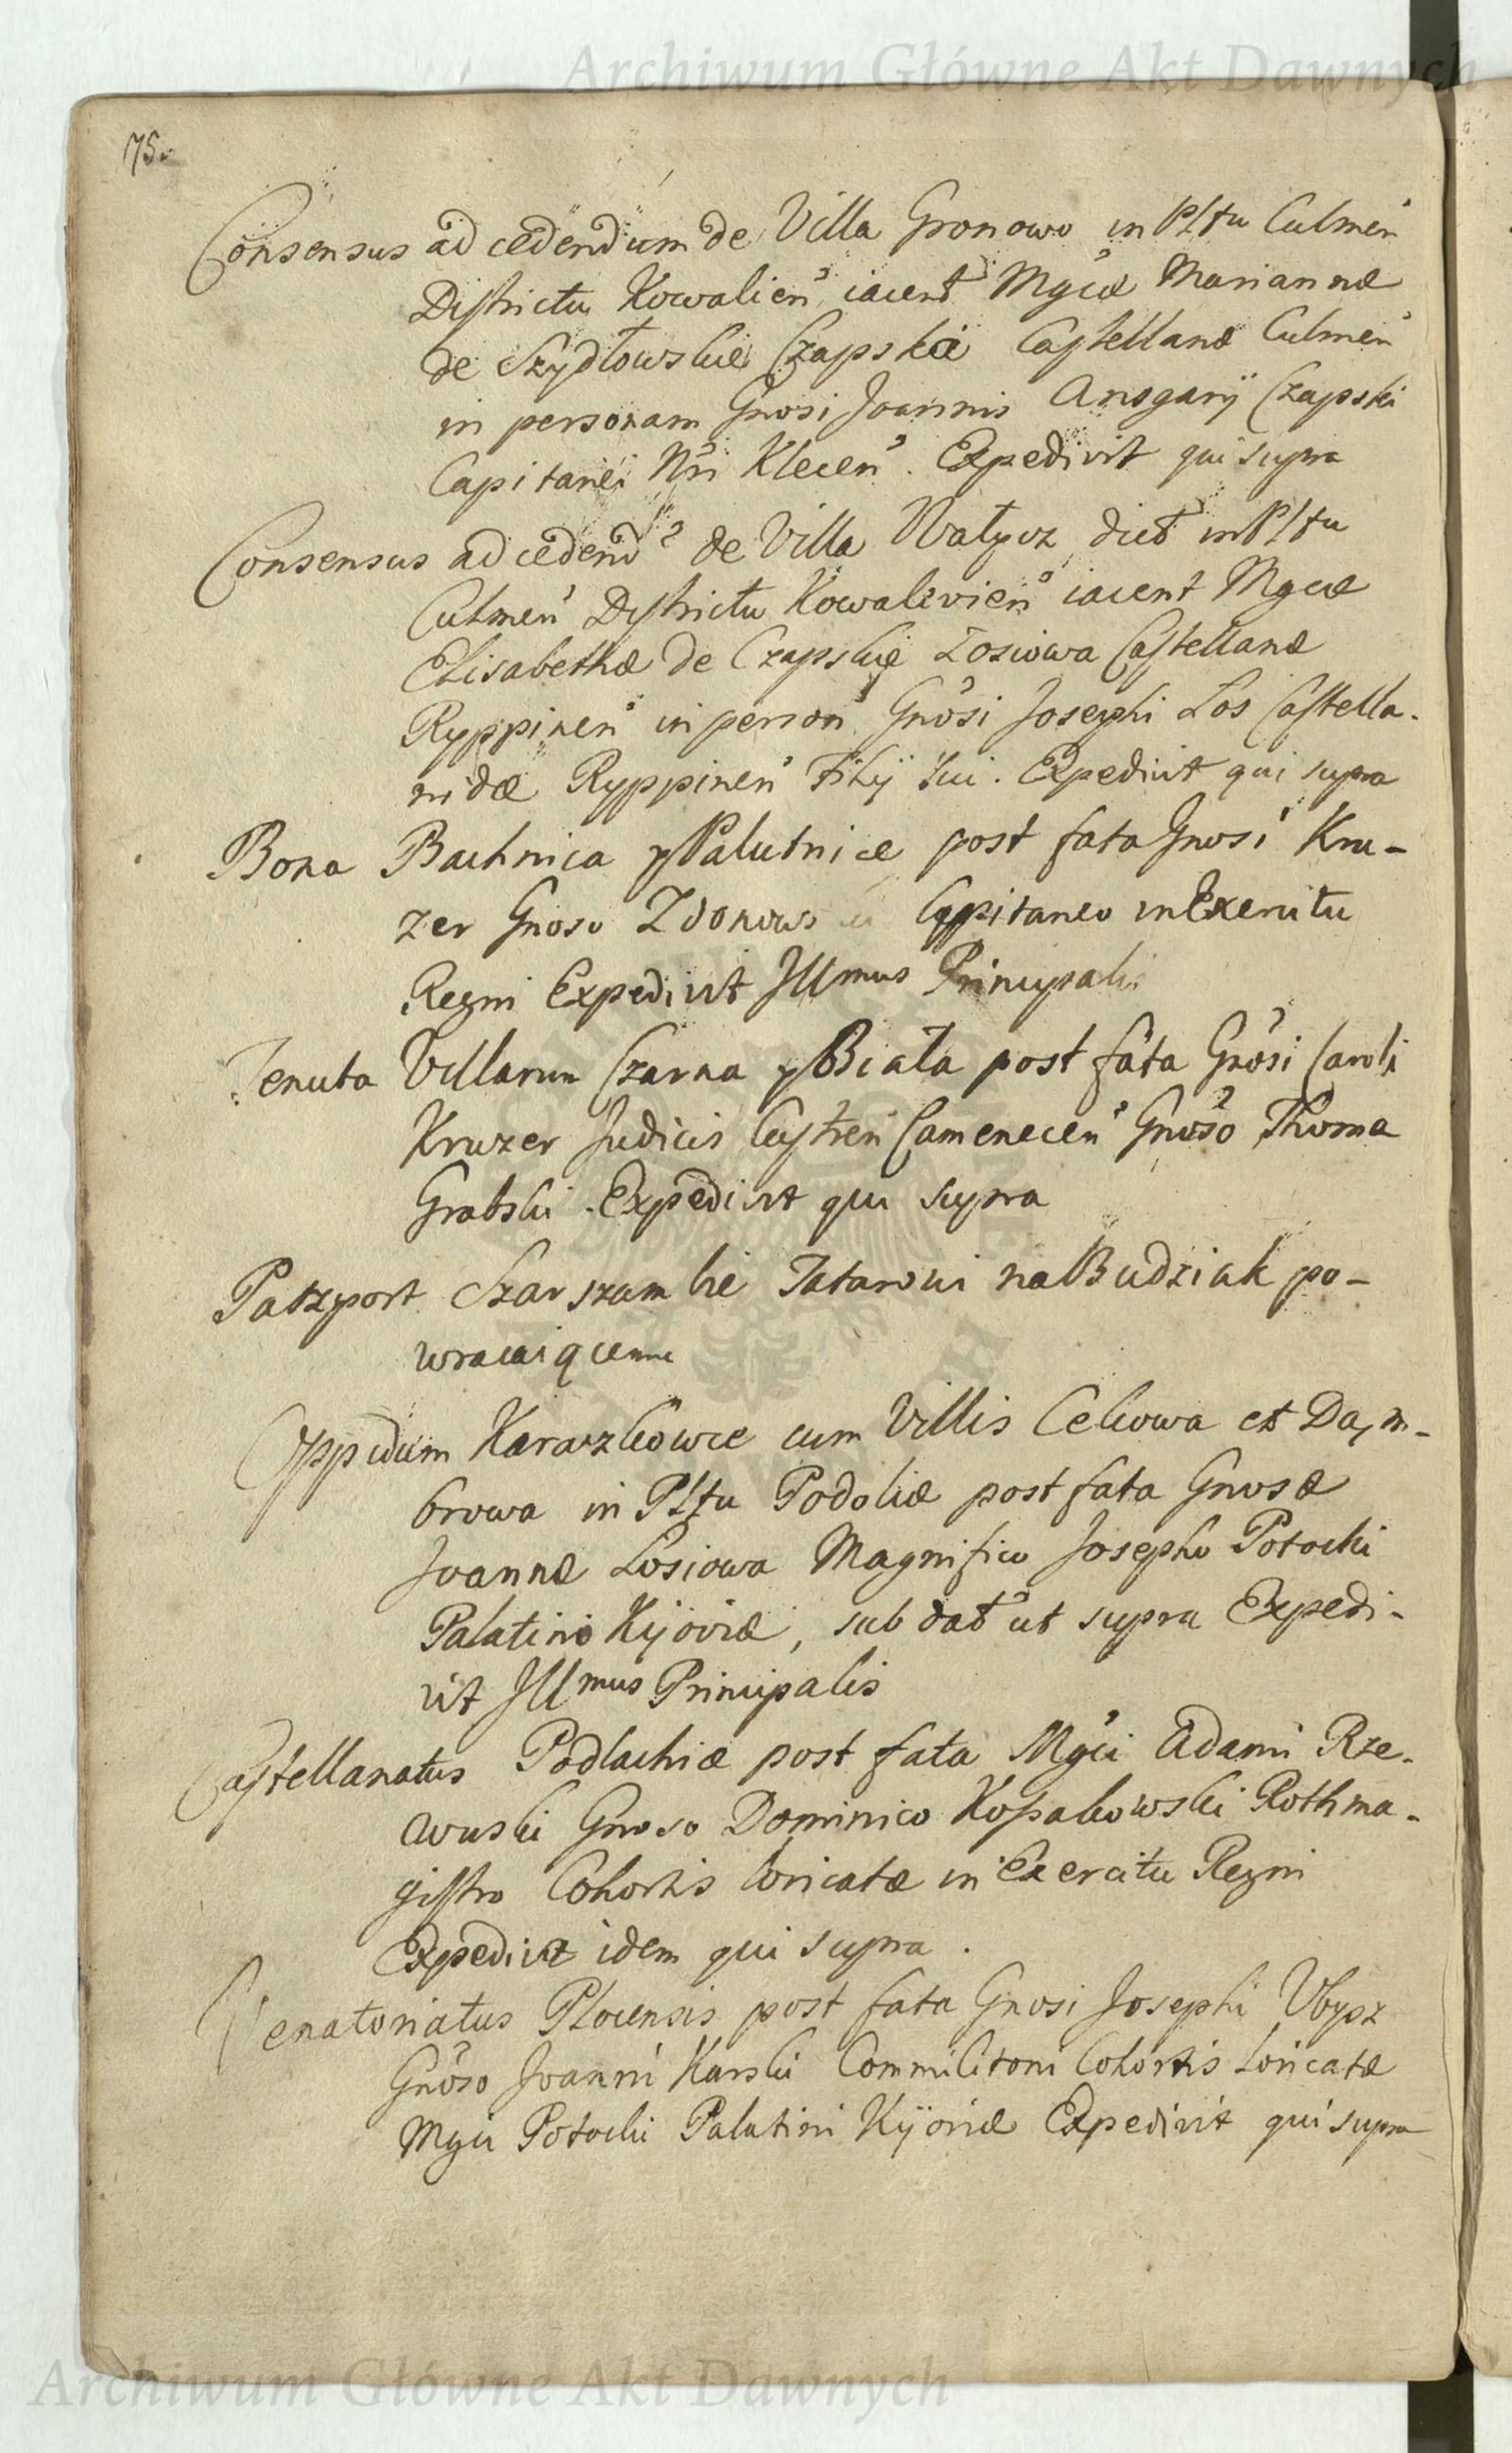 Archiwum Główne Akt Dawnych
175.
Consensus ad cedendum de Villa Gronowo in Pltu Culmen
Districtu Kowalien iacent Mgcæ Mariannæ
de Szydłowskie Czapskie Castellanæ Culmen
in personam Gnosi Joannis Ansgarÿ Czapski
Capitanei Nri Klecen. Expedivit qui supra
Consensus ad cedend de Villa Wałycz dict in Pltu
Culmen Districtu Kowalevien iacent Mgcæ
Elisabethæ de Czapskie Łosiowa Castellanæ
Ryppinen in person Gnosi Josephi Łos Castella-
nidæ Ryppinen Filÿ sui. Expedivit qui supra
Bona Bachnica y Palutnice post fata Gnosi Kru-
zer Gnoso Zdonows Cappitaneo in Exercitu
Regni Expedivit Illmus Principalis
Tenuta Villarum Czarna y Biała post fata Gnosi Caroli
Kruzer Judicis Castren Camenecen Gnoso Thoma
Grabski. Expedivit qui supra
Paszport Szarszambie Tatarowi na Budziak po-
wracaiącemu
Oppidum Karaczkowce cum Villis Celiowa et Dąm-
browa in Pltu Podoliæ post fata Gnosæ
Joannæ Łosiowa Magnifico Josepho Potocki
Palatino Kÿoviæ, sub dat ut supra Expedi-
vit Illmus Principalis
Castellanatus Podlachiæ post fata Mgci Adami Rze-
wuski Gnoso Dominico Kossakowski Rothma-
gistro Cohortis loricatæ in Exercitu Regni
Expedivit idem qui supra.
Venatoriatus Plocensis post fata Gnosi Josephi Ubysz
Gnoso Joanni Karski Commilitoni Cohortis Loricatæ
Mgci Potocki Palatini Kÿoviæ Expedivit qui supra
Archiwum Główne Akt Dawnych